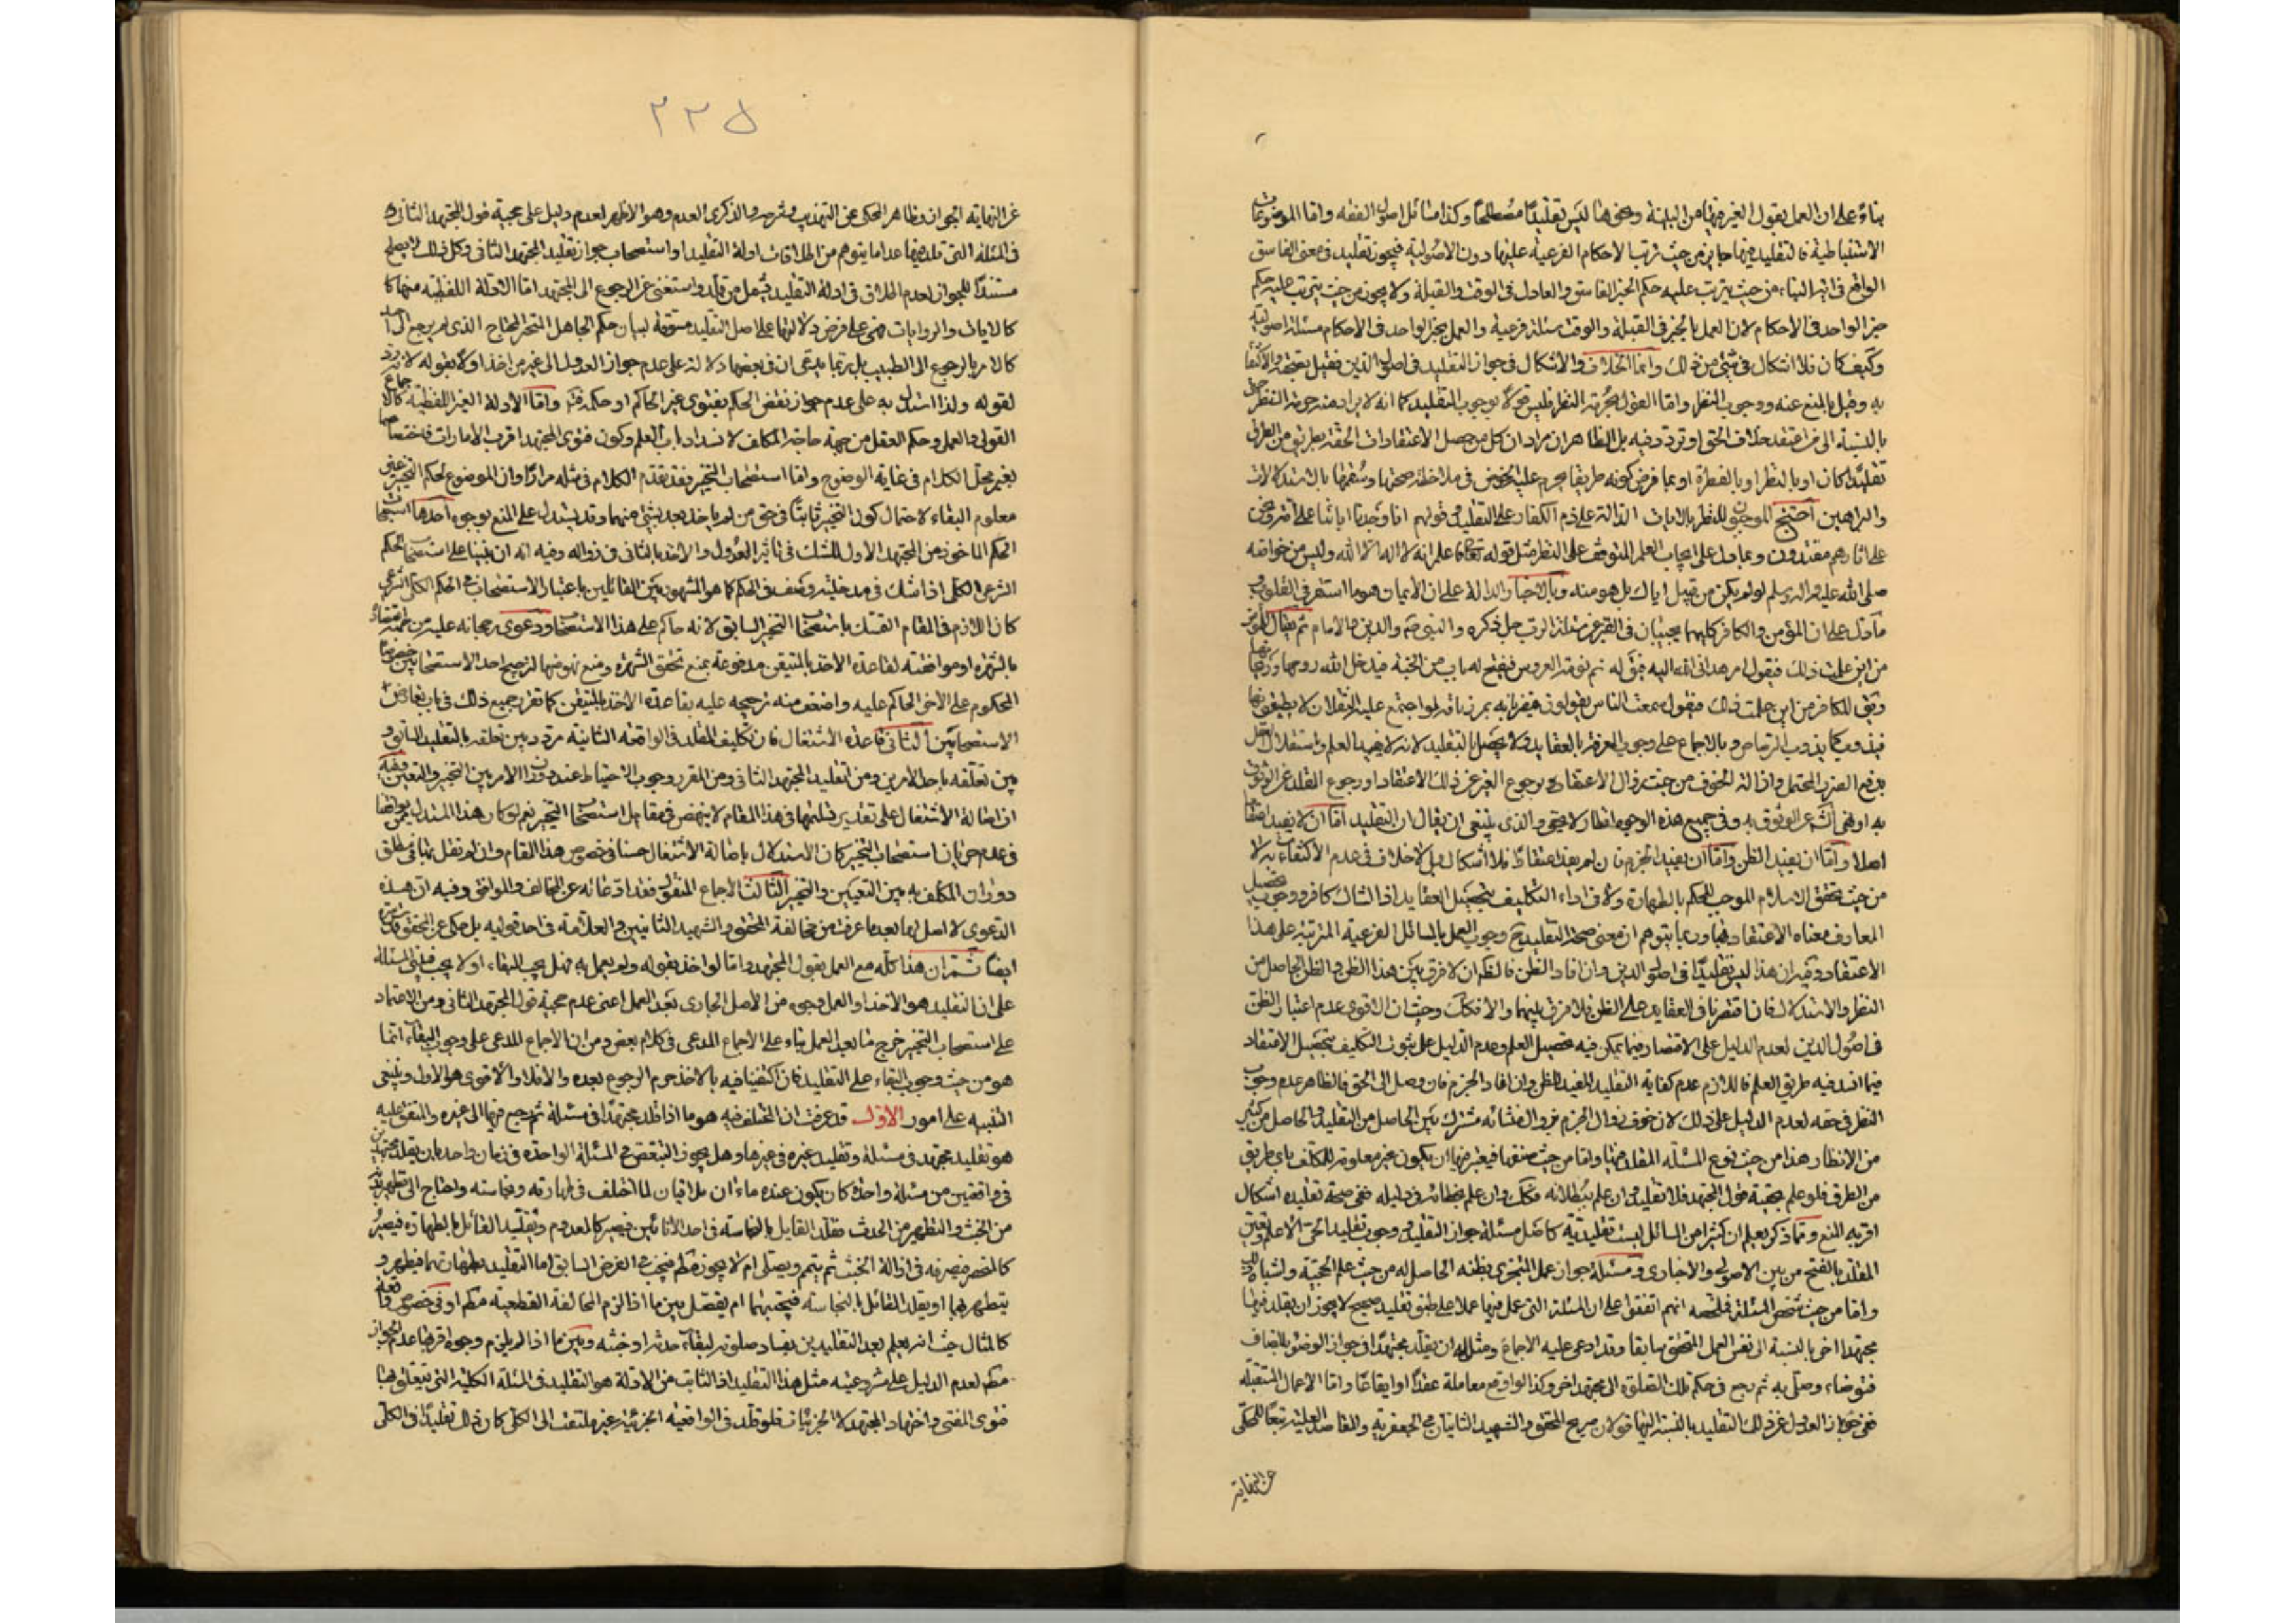 بناءً على ان العمل بقول الغير فيها من البينة ونحوها ليس تقليدا مصطلحا وكذا مسائل اصول الفقه واما الموضوعات
الاستنباطية فالتقليد فيها جايز من حيث ترتب الاحكام الفرعية عليها دون الاصولية فيجوز تقليده في معنى الفاسق
الواقع في اية النباء من حيث يترتب عليه حكم الخبر الفاسق والعادل في الوقت والقبلة ولا يجوز من حيث يترتب عليه حكم
خبر الواحد في الاحكام لان العمل بالخبر في القبلة والوقت مسئلة فرعية والعمل بخبر الواحد في الاحكام مسئلة اصولية
وكيف كان فلا اشكال في شئ من ذلك وانما الخلاف والاشكال في جواز التقليد في اصول الدين فقيل بصحته والاكتفا
به وقيل بالمنع عنه ووجوب النظر واما القول بحرمة النظر فليس قولا بوجوب التقليد كما انه لا يراد منه حرمة النظر حتى
بالنسبة الى من اعتقد خلاف الحق او تردد فيه بل الظاهر ان مراده ان كل من حصل الاعتقادات الحقة بطريق من الطرق
تقليدا كان او بالنظر او بالفطرة او بما فرض كونه طريقا يحرم عليه الخوض في ملاحظة صحتها وسقمها بالاستدلالات
والبراهين احتج الموجبون للنظر بالايات الدالة على ذم الكفار على التقليد في قولهم انا وجدنا اباءنا على امة ونحن
على اثارهم مقتدون وبما دل على ايجاب العلم المتوقف على النظر مثل قوله تعالى فاعلم انه لا اله الا الله وليس من خواصه
صلى الله عليه واله وسلم لو لم يكن من قبيل اياك بل هو منه وبالاخبار الدالة على ان الايمان هو ما استقر في القلوب و
ما دل على ان المؤمن والكافر كليهما يجيبان في القبر عن مسئلة الرب جل ذكره والنبي صم والدين والامام ثم يقال للمؤمن
من اين علمت ذلك فيقول امر هداني الله اليه فيق له نم نومة العروس فيفتح له باب من الجنة فيدخل الله روحها وريحانها
ويق للكافر من اين علمت ذلك فيقول سمعت الناس يقولون فيضربانه بمرزبة لو اجتمع عليه الثقلان لا يطيقونها
فيذوب كما يذوب الرصاص وبالاجماع على وجوب المعرفة بالعقايد ولا يحصل بالتقليد لانه لا يفيد العلم واستقلال العقل
بدفع الضرر المحتمل وازالة الخوف من حيث زوال الاعتقاد برجوع الغير عن ذلك الاعتقاد او رجوع المقلد عن الوثوق
وفي جميع هذه الوجوه انظار لا يخفى والذي ينبغي ان يقال ان التقليد اما ان لا يفيد اعتقادا
اصلا واما ان يفيد الظن واما ان يفيد الجزم فان لم يفد اعتقادا فلا اشكال بل لا خلاف في عدم الاكتفاء به لا
من حيث تحقق الاسلام الموجب للحكم بالطهارة ولا في اداء التكليف بتحصيل العقايد اذ الشاك كافر ووجوب تحصيل
المعارف معناه الاعتقاد بها وربما يتوهم ان معنى صحة التقليد ح وجوب العمل بالمسائل الفرعية المترتبة على هذا
الاعتقاد وفيه ان هذا ليس تقليدا في اصول الدين وان افاد الظن فالظم ان لا فرق بين هذا الظن والظن الحاصل من
النظر والاستدلال فان اقتصرنا في العقايد على الظن فلا فرق بينهما والا فكك وحيث ان الاقوى عدم اعتبار الظن
في اصول الدين لعدم الدليل على الاقتصار فيما يمكن فيه تحصيل العلم وعدم الدليل على ثبوت التكليف بتحصيل الاعتقاد
فيما انسد فيه طريق العلم فاللازم عدم كفاية التقليد المفيد للظن وان افاد الجزم فان وصل الى الحق فالظاهر عدم وجوب
النظر في حقه لعدم الدليل على ذلك لان خوف زوال الجزم بزوال منشائه مشترك بين الحاصل من التقليد والحاصل من كثير
من الانظار هذا من حيث نوع المسئلة المقلد فيها واما من حيث صنفها فيعتبر فيها ان يكون غير معلومة للمكلف باي طريق
من الطرق فلو علم بحقية قول المجتهد فلا تقليد وان علم ببطلانه فكك وان علم بخطائه في دليله ففي صحة تقليده اشكال
اقربه المنع ومما ذكر يعلم ان كثيرا من المسائل ليست تقليدية كاصل مسئلة جواز التقليد ووجوب تقليد الحي الاعلم وتعيين
المقلد بالفتح من بين الاصولي والاخباري ومسئلة جواز عمل المتجزي بظنه الحاصل له من حيث علم الحجية واشباه ذلك
واما من حيث شخص المسئلة فملخصه انهم اتفقوا على ان المسئلة التي عمل فيها عملا على طبق تقليد صحيح لا يجوز ان يقلد فيها
مجتهدا اخر بالنسبة الى نفس العمل المتحقق سابقا وقد ادعى عليه الاجماع ومثل له ان يقلد مجتهدا في جواز الوضوء بالمضاف
فتوضاء وصلى به ثم رجع في حكم تلك الصلوة الى مجتهد اخر وكذا الواقع معاملة عقدا او ايقاعا واما الاعمال المستقبلة
ففي جواز العدول عن ذلك التقليد بالنسبة اليها قولان صريح المحقق والشهيد الثانيان في الجعفرية والمقاصد العلية تبعا للمحكي
عن النهاية
٢٢٥
عن النهاية الجواز وظاهر المحكي عن التهذيب وشرحه والذكرى العدم وهو الاظهر لعدم دليل على حجية قول المجتهد الثاني
في المسئلة التي قلد فيها عدا ما يتوهم من اطلاقات ادلة التقليد او استصحاب جواز تقليد المجتهد الثاني وكل ذلك لا يصلح
مستندا للجواز لعدم اطلاق في ادلة التقليد يشمل من قلد واستغنى عن الرجوع الى المجتهد اما الادلة اللفظية منها
كالايات والروايات فهي على فرض دلالتها على اصل التقليد مسوقة لبيان حكم الجاهل المتحير المحتاج الذي لم يرجع الى احد
كالامر بالرجوع الى الطبيب بل ربما يدعى ان في بعضها دلالة على عدم جواز العدول الى غير من اخذ اولا بقوله لانه رد
لقوله ولذا استدل به على عدم جواز نقض الحكم بفتوى غير الحاكم او حكمه واما الادلة الغير اللفظية كالاجماع
القولي والعملي وحكم العقل من جهة حاجة المكلف لانسداد باب العلم وكون فتوى المجتهد اقرب الامارات فاختصاصها
بغير محل الكلام في غاية الوضوح واما استصحاب التخيير فقد تقدم الكلام في مثله مرارا وان الموضوع لحكم التخيير غير
معلوم البقاء لاحتمال كون التخيير ثابتا في حق من لم ياخذ بعد بشئ منهما وقد يستدل على المنع بوجوه احدها استصحاب
الحكم الماخوذ من المجتهد الاول للشك في تاثير العدول والاخذ بالثاني في زواله وفيه انه ان بنينا على استصحاب الحكم
الشرعي الكلي اذا شك في مدخلية وصف في الحكم كما هو المشهور بين القائلين باعتبار الاستصحاب في الحكم الكلي الشرعي
كان اللازم في المقام التمسك باستصحاب التخيير السابق لانه حاكم على هذا الاستصحاب ودعوى رجحانه عليه من جهة اعتضاده
بالشهرة او موافقته لقاعدة الاخذ بالمتيقن مدفوعة بمنع تحقق الشهرة ومنع نهوضها لترجيح احد الاستصحابين خصوصا
المحكوم على الاخر الحاكم عليه واضعف منه ترجيحه عليه بقاعدة الاخذ بالمتيقن كما تقرر جميع ذلك في باب تعارض
الاستصحابين الثاني قاعدة الاشتغال فان تكليف المقلد في الواقعة الثانية مردد بين تعلقه بالتقليد السابق و
بين تعلقه باحد الامرين ومن تقليد المجتهد الثاني ومن المقرر وجوب الاحتياط عند دوران الامر بين التخيير والتعيين وفيه
ان اصالة الاشتغال على تقدير تسليمها في هذا المقام لا ينهض في مقابل استصحاب التخيير نعم لو كان هذا المستدل ممن يوافقنا
في عدم جريان استصحاب التخيير كان الاستدلال باصالة الاشتغال حسنا في خصوص هذا المقام وان لم نقل بها في مطلق
دوران المكلف به بين التعيين والتخيير الثالث الاجماع المنقول فقد ادعائه عن المخالف والموافق وفيه ان هذه
الدعوى لا اصل لها بعد ما عرفت من مخالفة المحقق والشهيد الثانيين والعلامة في احد قوليه بل حكى عن المحقق
ايضا ثم ان هذا كله مع العمل بقول المجتهد واما لو اخذ بقوله ولم يعمل به فهل يجب البقاء او لا يجب فيبتني المسئلة
على ان التقليد هو الاخذ او العمل وجوه من الاصل الجاري بعد العمل اعني عدم حجية قول المجتهد الثاني ومن الاعتماد
على استصحاب التخيير خرج ما بعد العمل بناء على الاجماع المدعى في كلام بعض ومن ان الاجماع المدعى على وجوب البقاء انما
هو من حيث وجوب البقاء على التقليد فان اكتفينا فيه بالاخذ حرم الرجوع بعده والا فلا والاقوى هو الاول وينبغي
التنبيه على امور الاول قد عرفت ان المختلف فيه هو ما اذا قلد مجتهدا في مسئلة ثم رجع فيها الى غيره والمتفق عليه
هو تقليد مجتهد في مسئلة وتقليد غيره في غيرها وهل يجوز التبعض في المسئلة الواحدة في زمان واحد بان يقلد مجتهدين
في واقعتين من مسئلة واحدة كان يكون عنده ماءان ملاقيان لما اختلف في طهارته ونجاسته واحتاج الى تطهير بدنه
من الخبث والتطهير من الحدث فقلد القايل بالنجاسة في احد الانائين فيصير كالمعدوم وتقليد القائل بالطهارة فيصير
كالمنحصر فيصرفه في ازالة الخبث ثم يتيمم ويصلي ام لا يجوز مطلقا فيجب في الفرض السابق اما التقليد بطهارتهما فيطهر و
يتطهر بهما او يقلد القائل بالنجاسة فيجتنبهما ام يفصل بين ما اذا لزم المخالفة القطعية مطم او في خصوص واقعة
كالمثال حيث انه يعلم بعد التقليدين بفساد صلوته لبقاء حدثه او خبثه وبين ما اذا لم يلزم وجوه اقربها عدم الجواز
مطم لعدم الدليل على مشروعية مثل هذا التقليد اذ الثابت من الادلة هو التقليد في المسئلة الكلية التي يتعلق بها
فتوى المفتي واجتهاد المجتهد لا الجزئيات فلو قلد في الواقعة الجزئية غير ملتفت الى الكلي كان ذلك تقليدا في الكلي